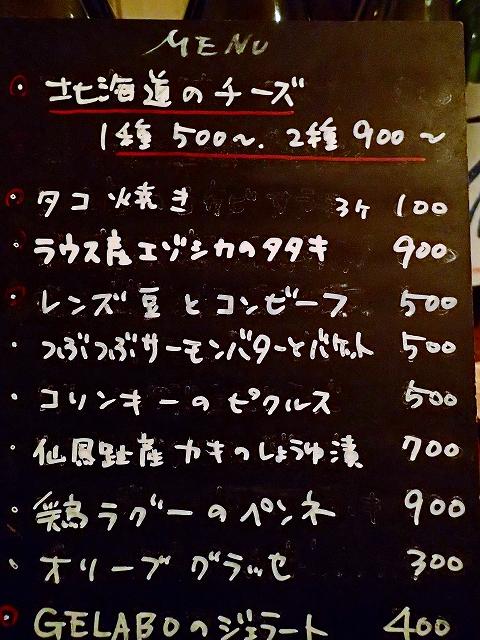 MENU
・北海道のチーズ
1種 500〜. 2種 900〜
・タコ焼き 3ヶ 100
・ラウス産エゾシカのタタキ 900
・レンズ豆とコンビーフ 500
・つぶつぶサーモンバターとバケット 500
・コリンキーのピクルス 500
・仙鳳趾産カキのしょうゆ漬 700
・鶏ラグーのペンネ 900
・オリーブグラッセ 300
・GELABOのジェラート 400